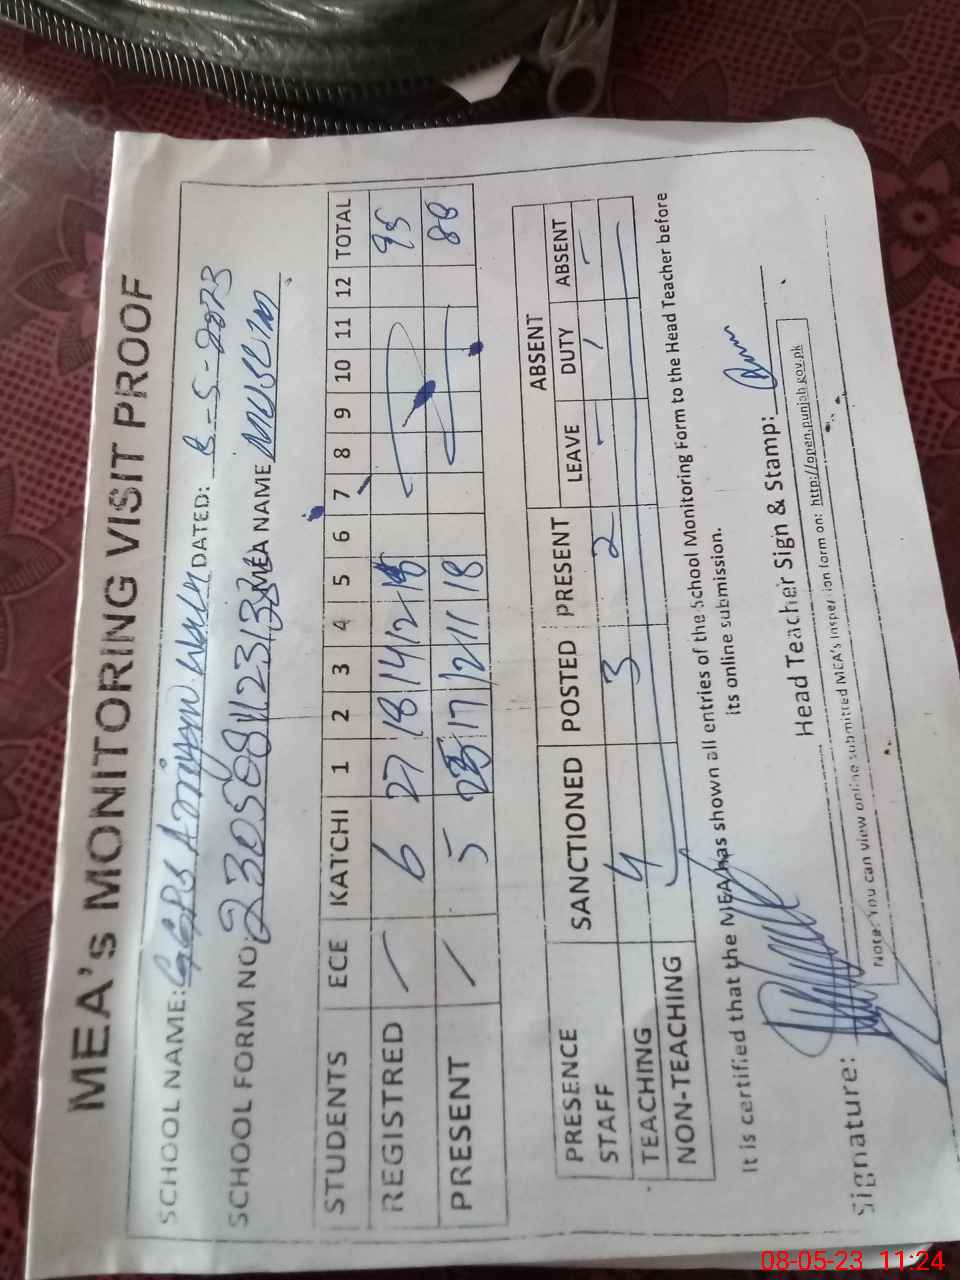 MEA's MONITORING VISIT PROOF
SCHOOL NAME: GGPS DATED: 8-5-2023
SCHOOL FORM NO: MEA NAME MUSLIM
STUDENTS ECE KATCHI 1 2 3 4 5 6 7 8 9 10 11 12 TOTAL
REGISTRED / 6 27 18 14 12 95
PRESENT / 5 17 12 11 18 88
PRESENCE SANCTIONED POSTED PRESENT ABSENT
STAFF LEAVE DUTY ABSENT
TEACHING 4 3 2
NON-TEACHING
It is certified that the MEA has shown all entries of the School Monitoring Form to the Head Teacher before
its online submission.
Signature: Head Teacher Sign & Stamp:
Note: You can view online submitted MEA's Inspection form on: http://open.punjab.gov.pk
08-05-23 11:24